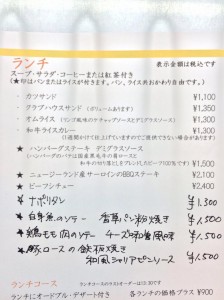 ランチ 表示金額は税込です
スープ・サラダ・コーヒーまたは紅茶付き
(★印はパンまたはライスが付きます。パン、ライス共おかわり自由です。)
・ カツサンド ¥1,100
・ クラブハウスサンド (ボリュームあります) ¥1,350
・ オムライス (ケチャップソースとデミグラスソース) ¥1,300
・ 和牛ライスカレー ¥1,300
★ ハンバーグステーキ デミグラスソース
¥1,500
★ ニュージーランド産サーロインのBBQステーキ ¥2,100
★ ビーフシチュー ¥2,400
★ ナポリタン ¥1,300
★ 白身魚のソテー 香草パン粉焼き ¥1,500
★ 鶏もも肉のソテー チーズ和 風味 ¥1,500
★ 豚ロースの鉄板焼き
和風シャリアピンソース ¥1,500
ランチコース (ランチコースのラストオーダーは13:30です)
ランチにオードブル・デザート付き 各ランチの価格プラス ¥900